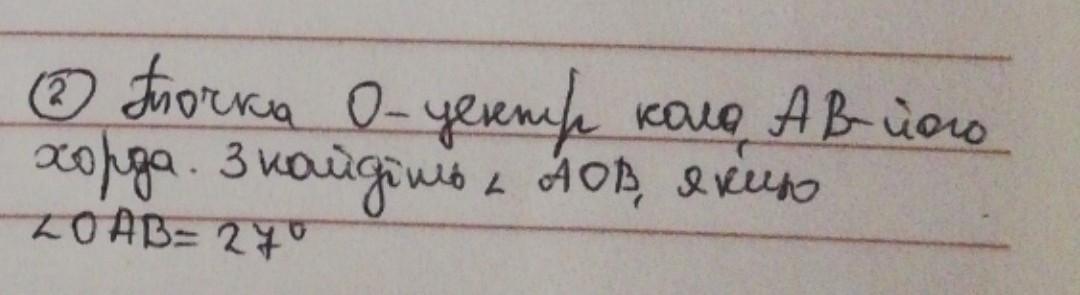 ② Точка О-центр кола, АВ-його
хорда. Знайдіть ∠ АОВ, якщо
∠ОАВ= 27°